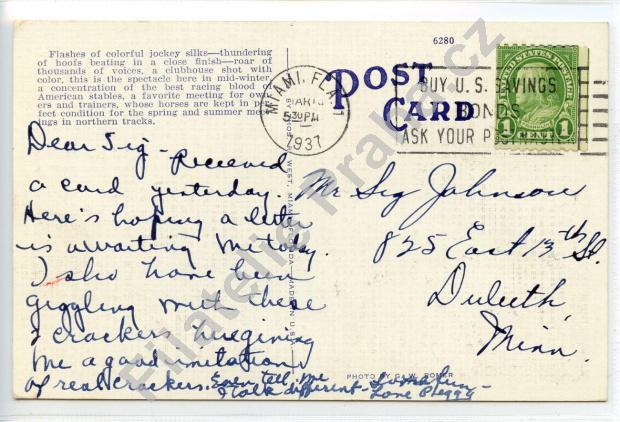 Flashes of colorful jockey silks—thundering
of hoofs beating in a close finish—roar of
thousands of voices, a clubhouse shot with
color, this is the spectacle here in mid-winter,
a concentration of the best racing blood of
American stables, a favorite meeting for own-
ers and trainers, whose horses are kept in per-
fect condition for the spring and summer meet-
ings in northern tracks.
6280
POST
CARD
MIAMI, FLA. 1
MAR
5 30 PM
1937
BUY U.S. SAVINGS
BONDS
ASK YOUR
UNITED STATES POSTAGE
1 CENT 1
Dear Sig - Received
a card yesterday.
Here's hoping a letter
is awaiting me today.
I also have been
giggling with these
crackers
me a good imitation
of real crackers. Even tell me
I talk different -
Love Peggy
Mr Sig Johnson
825 East 13th St.
Duluth,
Minn.
WEST, MIAMI, FLORIDA MADE IN U.S.A.
PHOTO BY G. W. ROMER
Filatelie Praha.cz